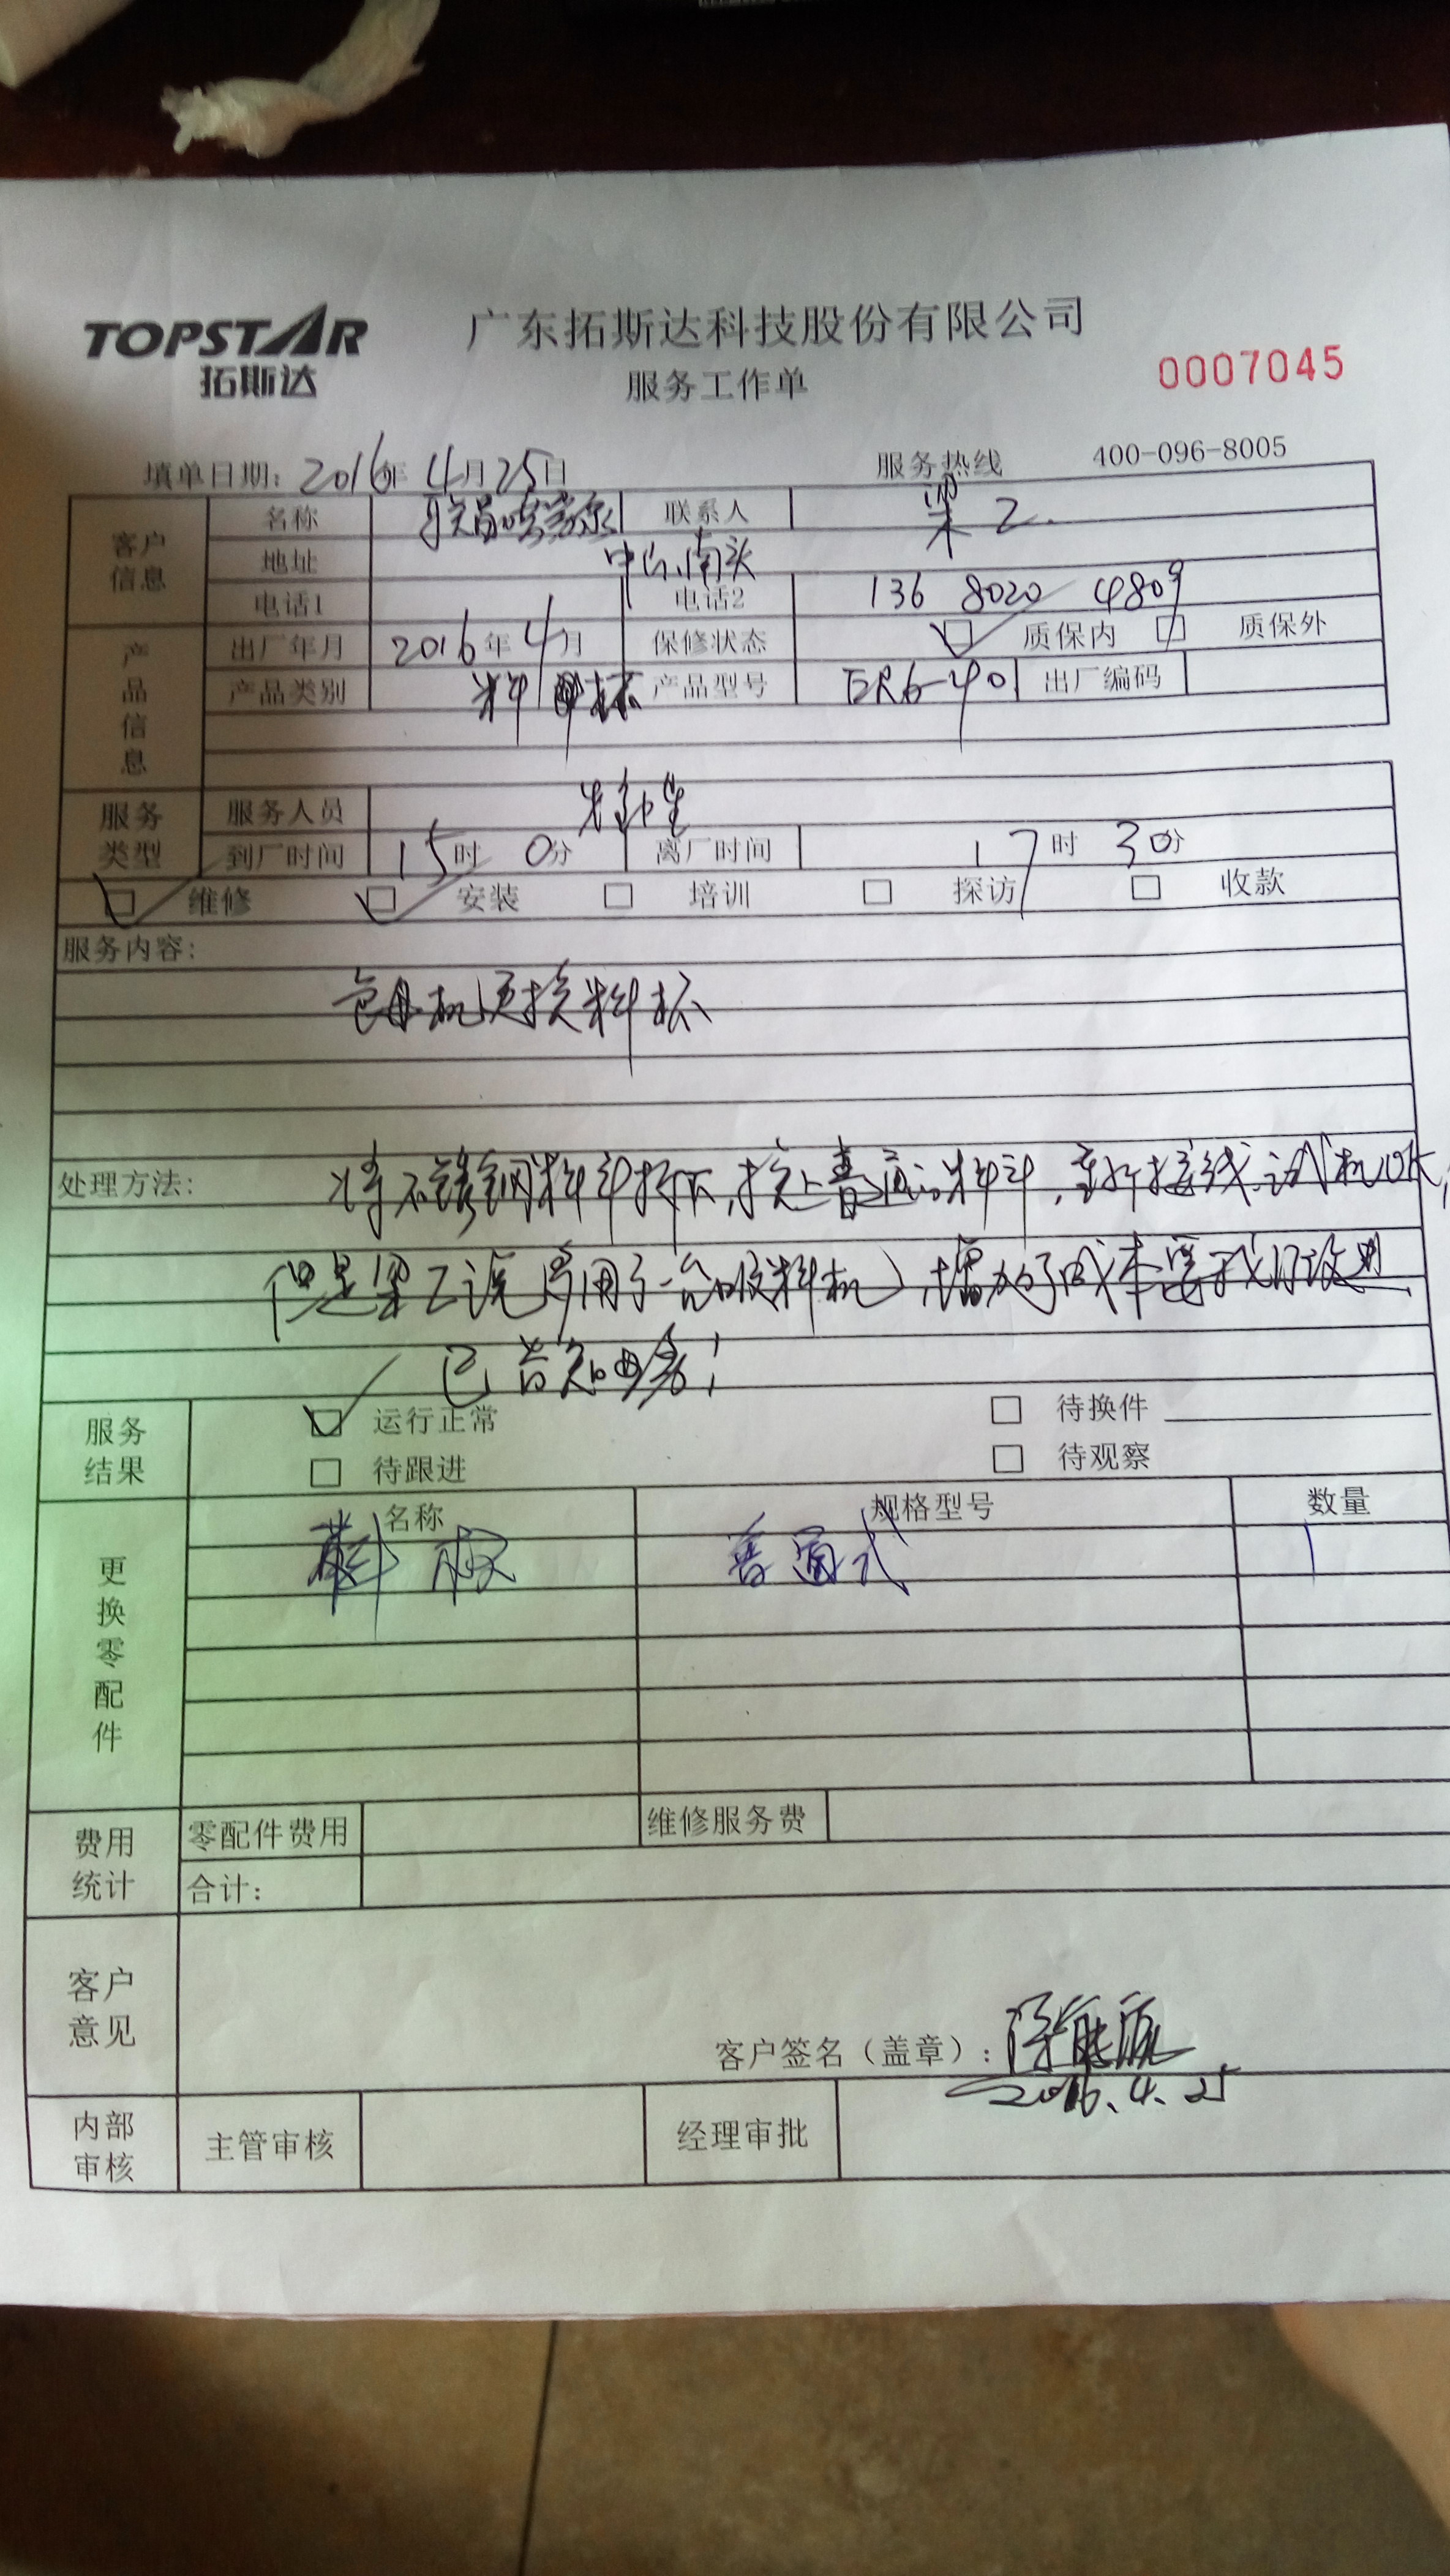 TOPSTAR
拓斯达
广东拓斯达科技股份有限公司
服务工作单
0007045
填单日期: 2016年 4月 25日
服务热线 400-096-8005
客户信息
名称 联昌喷雾泵
联系人 梁工
地址 中山南头
电话1
电话2 136 8020 4809
产品信息
出厂年月 2016年 4月
保修状态 ☑ 质保内 □ 质保外
产品类别 料杯
产品型号
出厂编码
服务类型
服务人员
到厂时间 15时 0分
离厂时间 17时 30分
☑ 维修 ☑ 安装 □ 培训 □ 探访 □ 收款
服务内容:
机更换料杯
处理方法: 将不锈钢料斗拆下,换上普通料斗,重新接线试机OK,
但是梁工说 用了一台吸料机,增加了成本要我们
已告知
服务结果
☑ 运行正常
□ 待换件
□ 待跟进
□ 待观察
更换零配件
名称 规格型号 数量
普通式 1
费用统计
零配件费用
维修服务费
合计:
客户意见
客户签名(盖章):
2016.4.25
内部审核
主管审核
经理审批